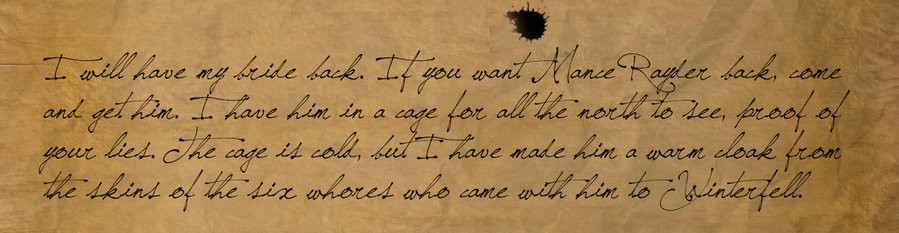 I will have my bride back. If you want Mance Rayder back, come
and get him. I have him in a cage for all the north to see, proof of
your lies. The cage is cold, but I have made him a warm cloak from
the skins of the six whores who came with him to Winterfell.